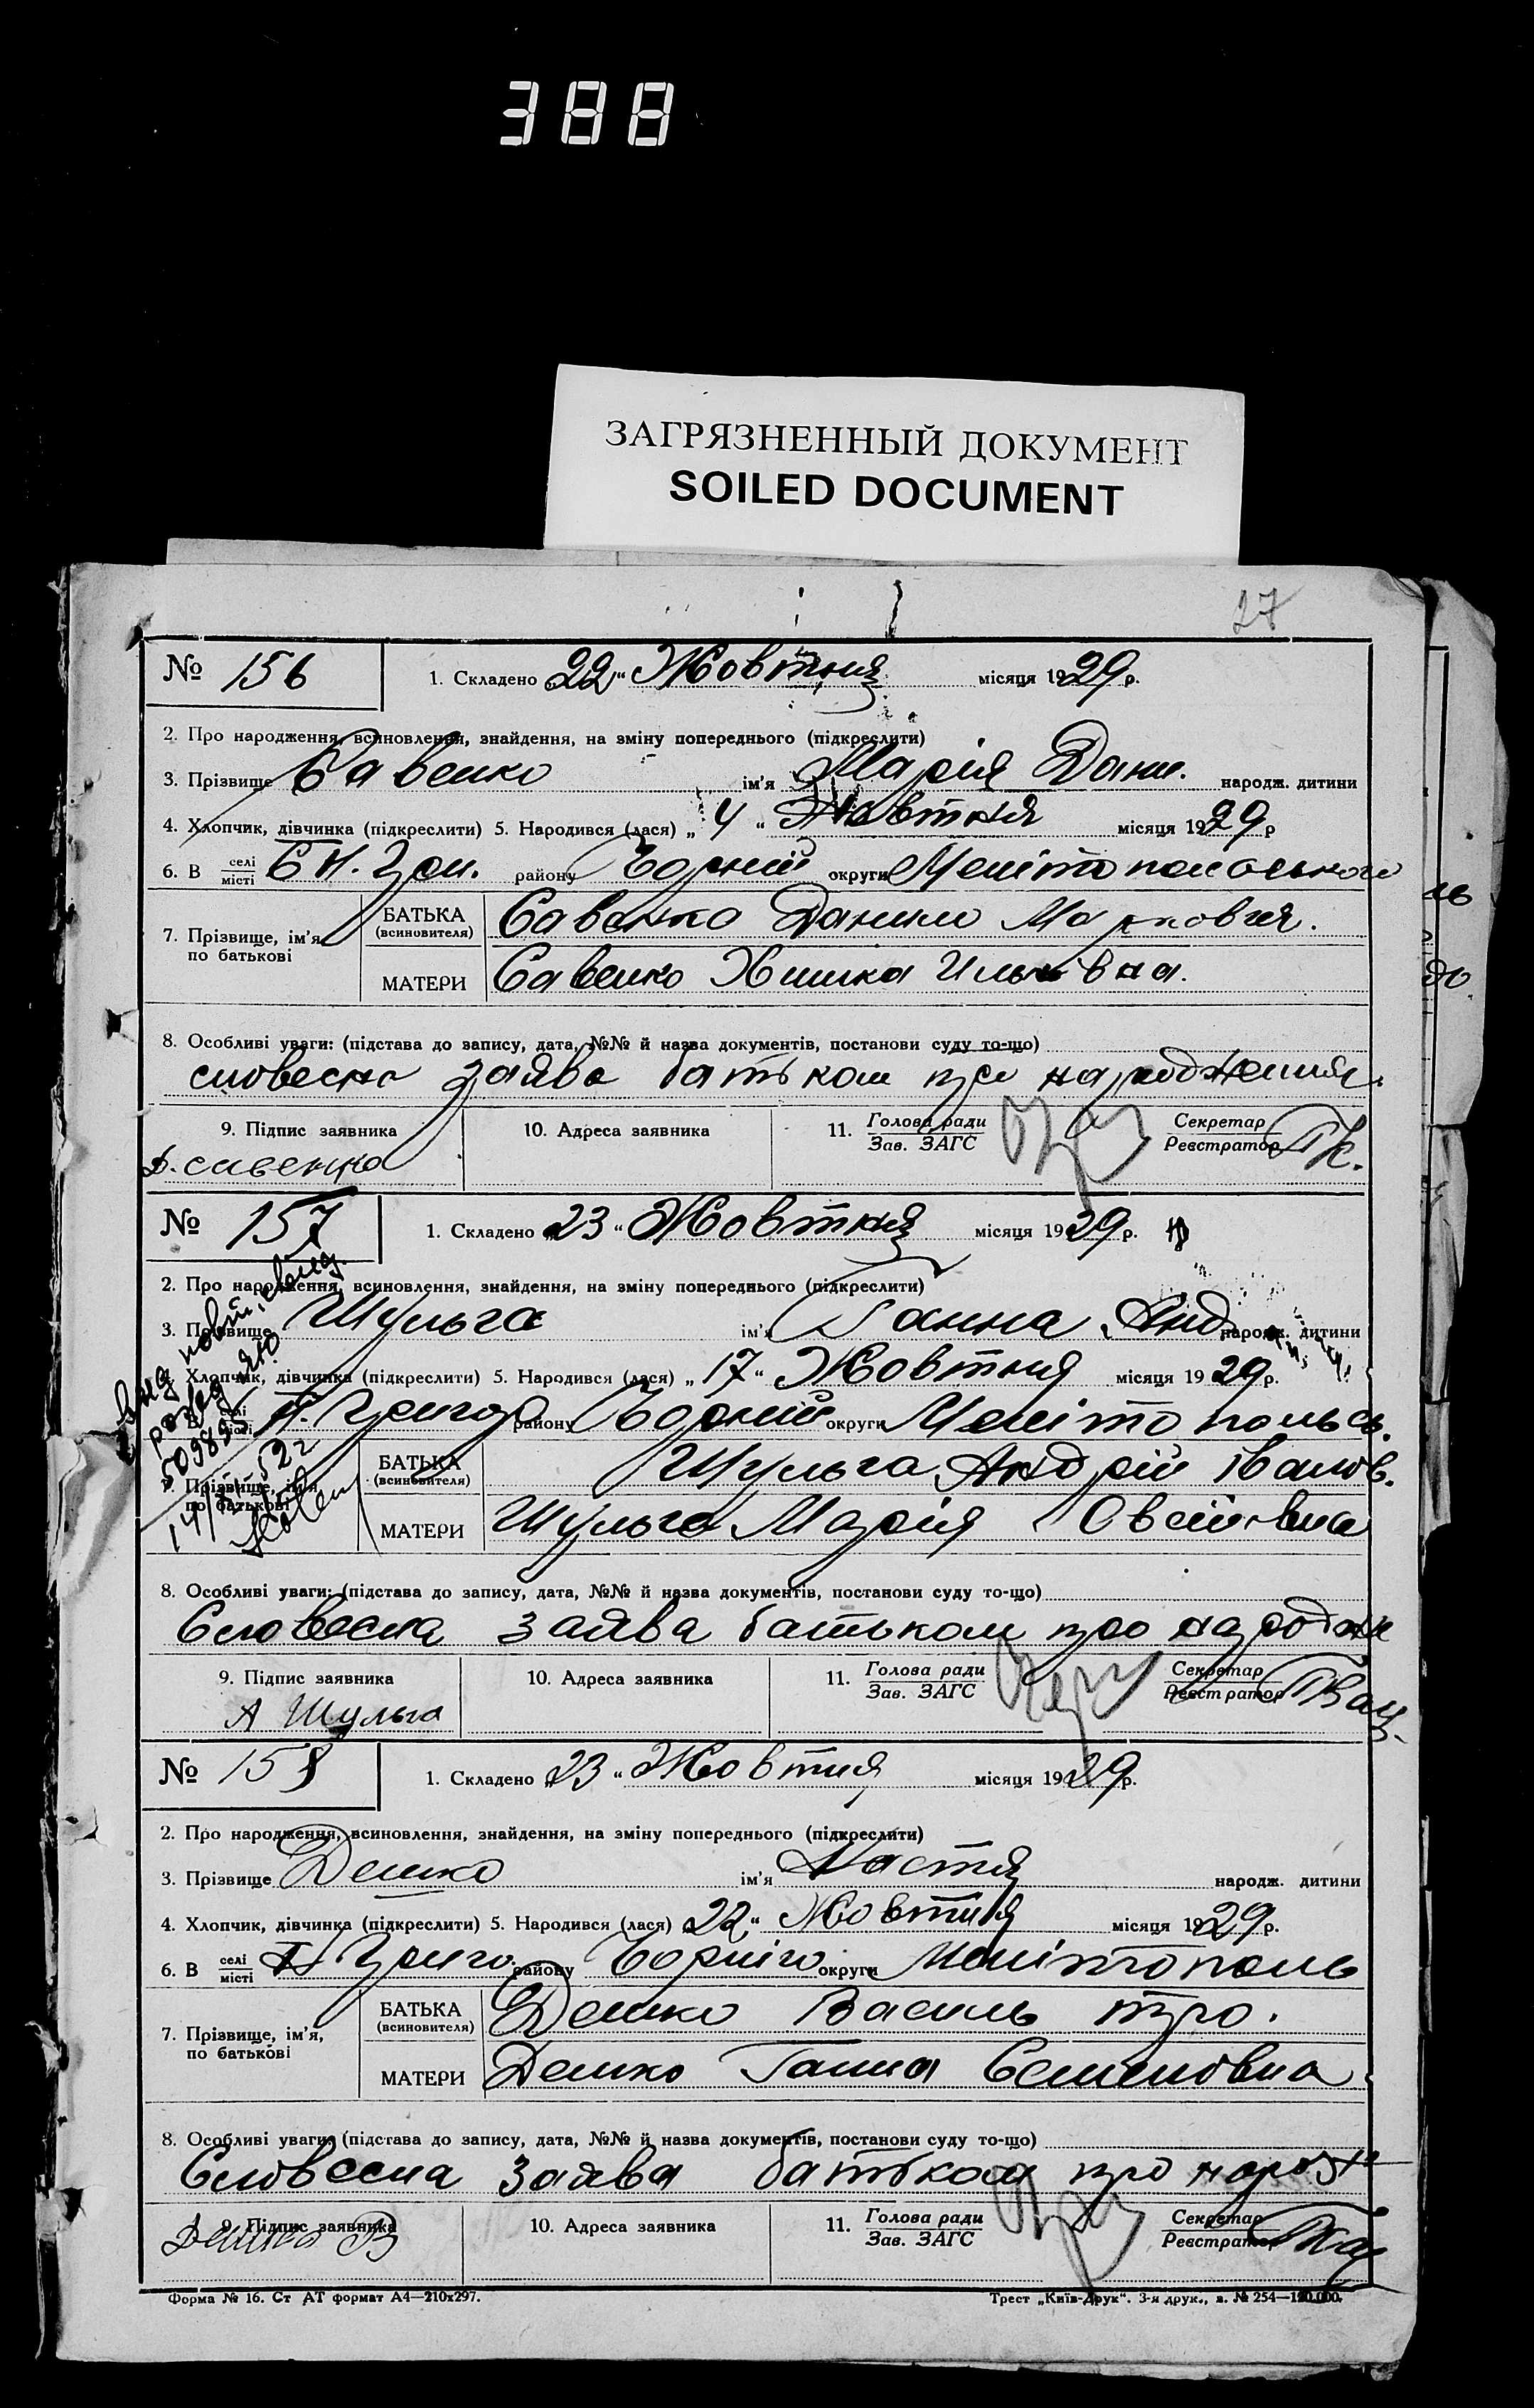 388
ЗАГРЯЗНЕННЫЙ ДОКУМЕНТ
SOILED DOCUMENT
27
№ 156 1. Складено „22“ Жовтня місяця 1929 р.
2. Про народження, всиновлення, знайдення, на зміну попереднього (підкреслити)
3. Прізвище Савенко ім'я Марія Дани. народж. дитини
4. Хлопчик, дівчинка (підкреслити) 5. Народився (лася) „4“ Жовтня місяця 1929 р
6. В селі/місті району округи
7. Прізвище, ім'я по батькові БАТЬКА (всиновителя) Савенко Данило Маркович.
МАТЕРИ Савенко
8. Особливі уваги: (підстава до запису, дата, №№ й назва документів, постанови суду то-що)
словесна заява батьком про народження.
9. Підпис заявника 10. Адреса заявника 11. Голова ради/Зав. ЗАГС Секретар/Реєстратор
Д. савенко
№ 157 1. Складено „23“ Жовтня місяця 1929 р.
2. Про народження, всиновлення, знайдення, на зміну попереднього (підкреслити)
3. Прізвище Шульга ім'я Ганна народж. дитини
4. Хлопчик, дівчинка (підкреслити) 5. Народився (лася) „17“ Жовтня місяця 1929 р.
В селі/місті району округи Мелітопольсь.
7. Прізвище, ім'я по батькові БАТЬКА (всиновителя) Шульга Андрій Іванов.
МАТЕРИ Шульга Марія
8. Особливі уваги: (підстава до запису, дата, №№ й назва документів, постанови суду то-що)
Словесна заява батьком про народже
9. Підпис заявника 10. Адреса заявника 11. Голова ради/Зав. ЗАГС Секретар/Реєстратор
А Шульга
№ 158 1. Складено „23“ Жовтня місяця 1929 р.
2. Про народження, всиновлення, знайдення, на зміну попереднього (підкреслити)
3. Прізвище Демко ім'я Настя народж. дитини
4. Хлопчик, дівчинка (підкреслити) 5. Народився (лася) „22“ Жовтня місяця 1929 р.
6. В селі/місті району округи Мелітополь
7. Прізвище, ім'я, по батькові БАТЬКА (всиновителя) Демко Василь
МАТЕРИ Демко Ганна Семеновна
8. Особливі уваги: (підстава до запису, дата, №№ й назва документів, постанови суду то-що)
Словесна заява батьком про
9. Підпис заявника 10. Адреса заявника 11. Голова ради/Зав. ЗАГС Секретар/Реєстратор
Демко В
Форма № 16. Ст АТ формат А4—210х297. Трест „Київ-Друк“. 3-я друк., з. № 254—120.000.